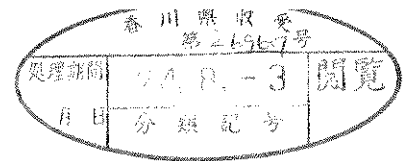 香川県収受
第26967号
処理期間 24.8.-3 閲覧
月日 分類記号